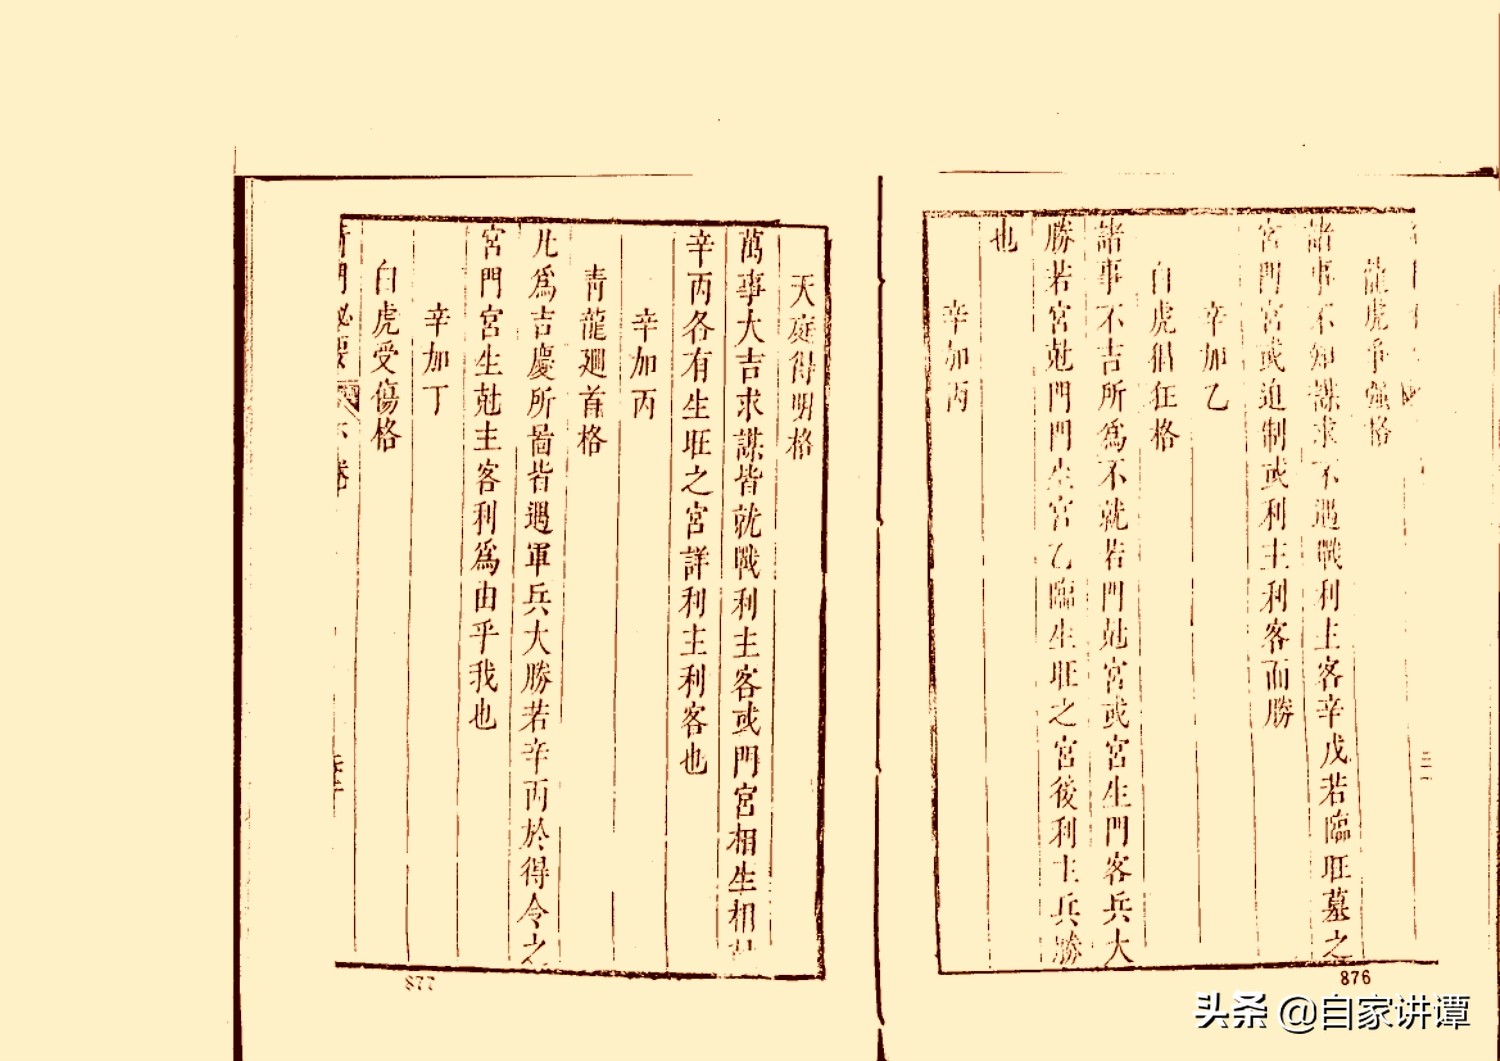 龍虎爭強格
諸事不如謀求不遇戰利主客辛戊若臨旺墓之
宮門宮或迫制或利主利客而勝
辛加乙
白虎猖狂格
諸事不吉所爲不就若門尅宮或宮生門客兵大
勝若宮尅門門生宮乙臨生旺之宮後利主兵勝
也
辛加丙
876
天庭得明格
萬事大吉求謀皆就戰利主客或門宮相生相
辛丙各有生旺之宮詳利主利客也
辛加丙
青龍廻首格
凡爲吉慶所啚皆遇軍兵大勝若辛丙於得令之
宮門宮生尅主客利爲由乎我也
辛加丁
白虎受傷格
877
头条 @自家讲谭